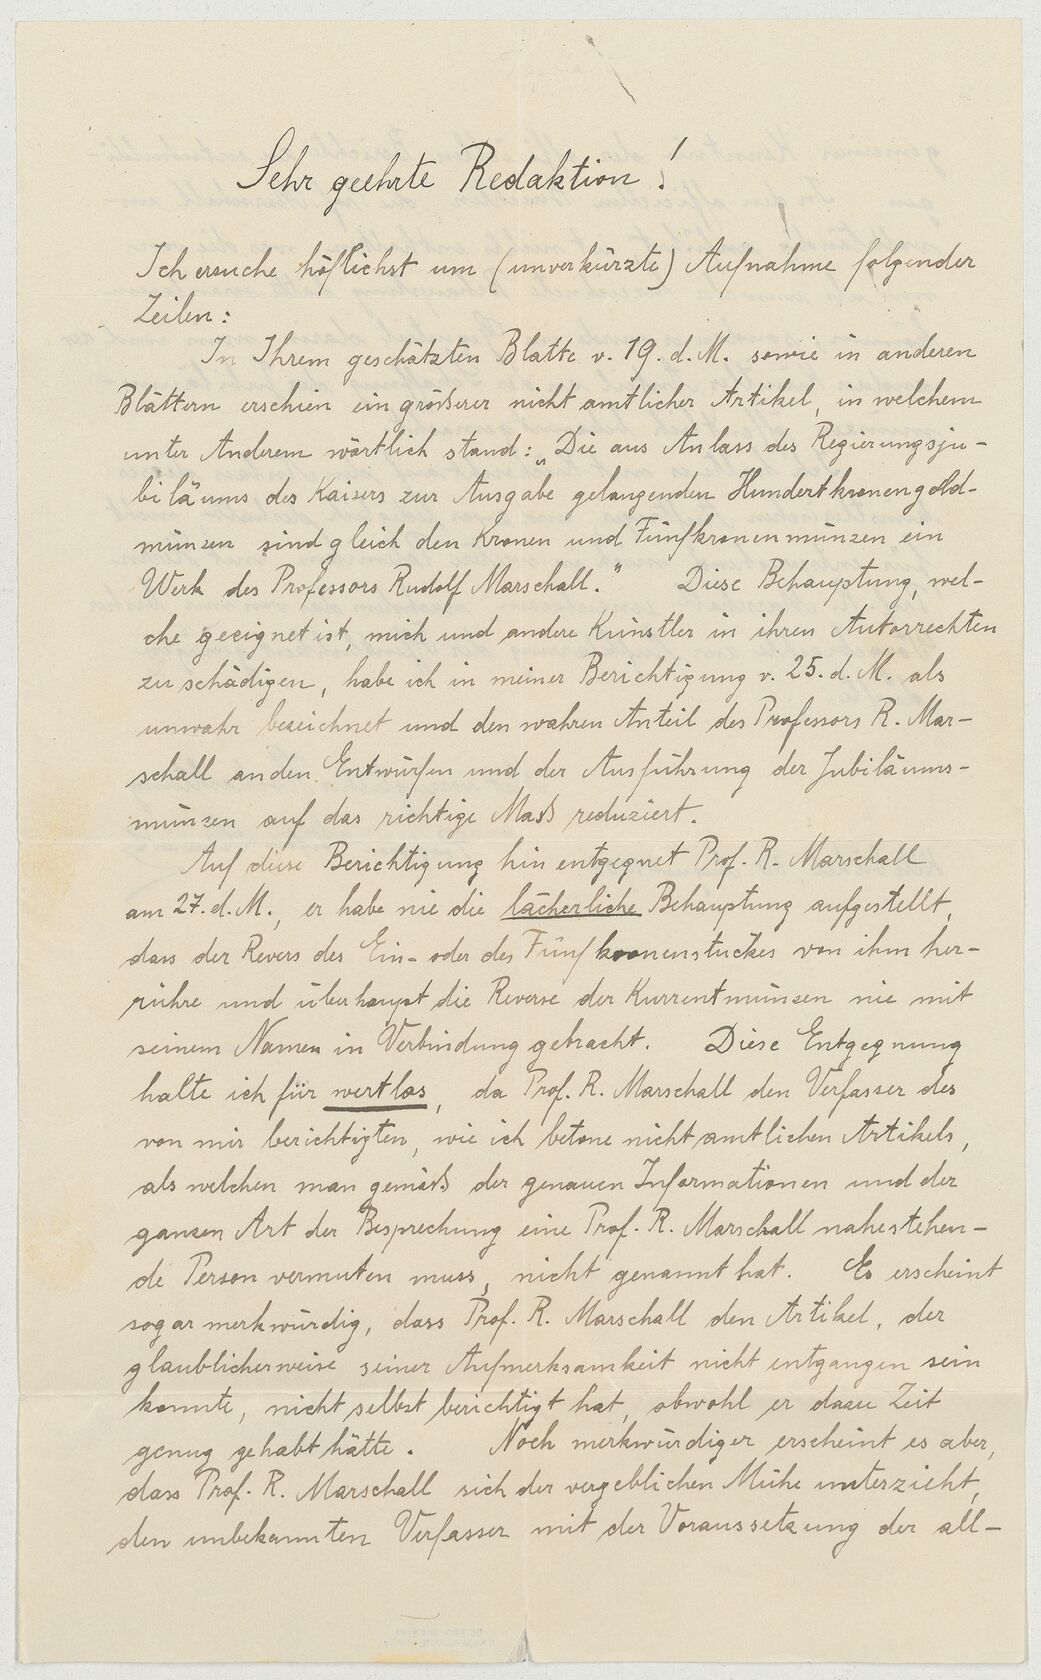 Sehr geehrte Redaktion!
Ich ersuche höflichst um (unverkürzte) Aufnahme folgender
Zeilen:
In Ihrem geschätzten Blatte v. 19. d. M. sowie in anderen
Blättern erschien ein größerer nicht amtlicher Artikel, in welchem
unter Anderem wörtlich stand: „Die aus Anlass des Regierungsju-
biläums des Kaisers zur Ausgabe gelangenden Hundertkronengold-
münzen sind gleich den Kronen und Fünfkronenmünzen ein
Werk des Professors Rudolf Marschall.” Diese Behauptung, wel-
che geeignet ist, mich und andere Künstler in ihren Autorrechten
zu schädigen, habe ich in meiner Berichtigung v. 25. d. M. als
unwahr bezeichnet und den wahren Anteil des Professors R. Mar-
schall an den Entwürfen und der Ausführung der Jubiläums-
münzen auf das richtige Maß reduziert.
Auf diese Berichtigung hin entgegnet Prof. R. Marschall
am 27. d. M., er habe nie die lächerliche Behauptung aufgestellt,
dass der Revers des Ein- oder des Fünfkronenstückes von ihm her-
rühre und überhaupt die Reverse der Kurrentmünzen nie mit
seinem Namen in Verbindung gebracht. Diese Entgegnung
halte ich für wertlos, da Prof. R. Marschall den Verfasser des
von mir berichtigten, wie ich betone nicht amtlichen Artikels,
als welchen man gemäß der genauen Informationen und der
ganzen Art der Besprechung eine Prof. R. Marschall nahestehen-
de Person vermuten muss, nicht genannt hat. Es erscheint
sogar merkwürdig, dass Prof. R. Marschall den Artikel, der
glaublicherweise seiner Aufmerksamkeit nicht entgangen sein
konnte, nicht selbst berichtigt hat, obwohl er dazu Zeit
genug gehabt hätte. Noch merkwürdiger erscheint es aber,
dass Prof. R. Marschall sich der vergeblichen Mühe unterzieht,
den unbekannten Verfasser mit der Voraussetzung der all-